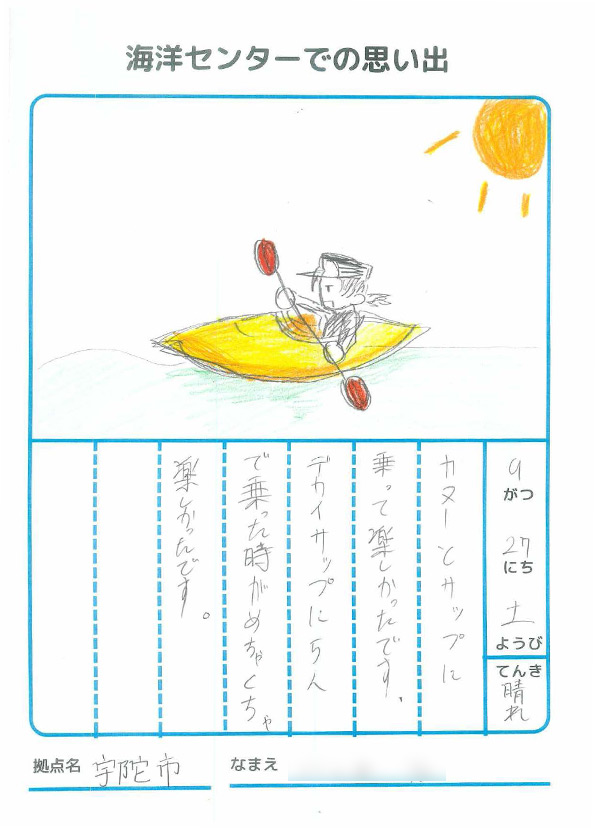 海洋センターでの思い出
9がつ
27にち
土ようび
てんき
晴れ
カヌーとサップに
乗って楽しかったです。
デカイサップに5人
で乗った時がめちゃくちゃ
楽しかったです。
拠点名 宇陀市
なまえ